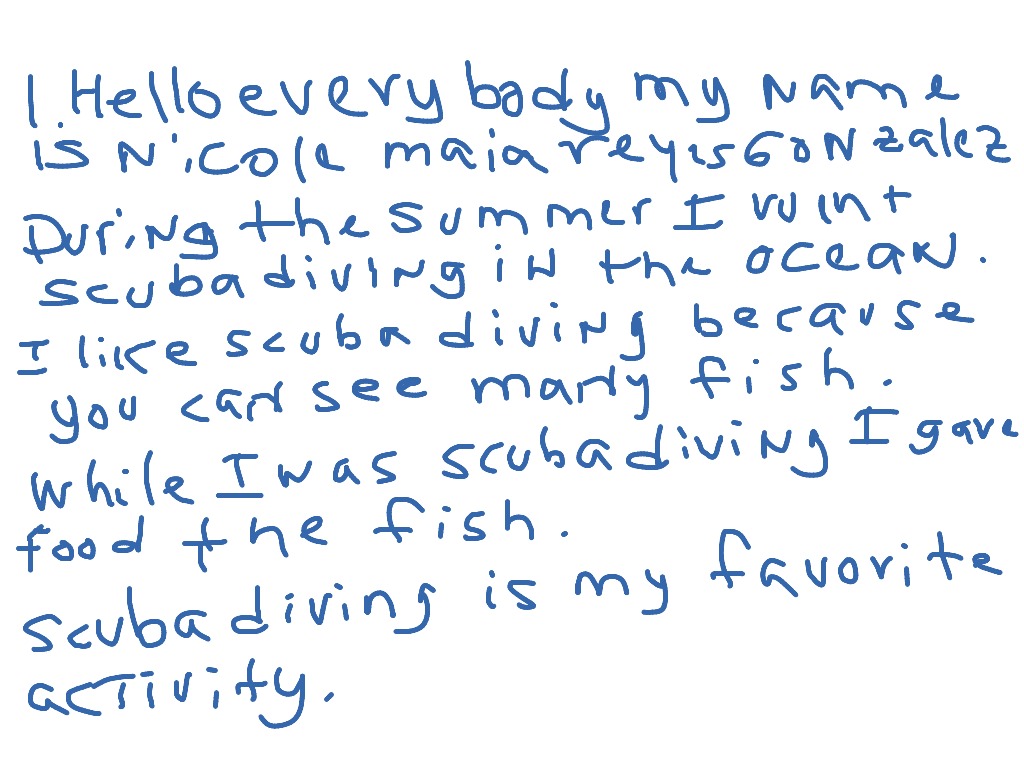 1. Hello every body my name
is Nicole maia reyes Gonzalez
During the summer I wint
scuba diving in the ocean.
I like scuba diving because
you can see many fish.
while I was scuba diving I gave
food the fish.
scuba diving is my favorite
activity.